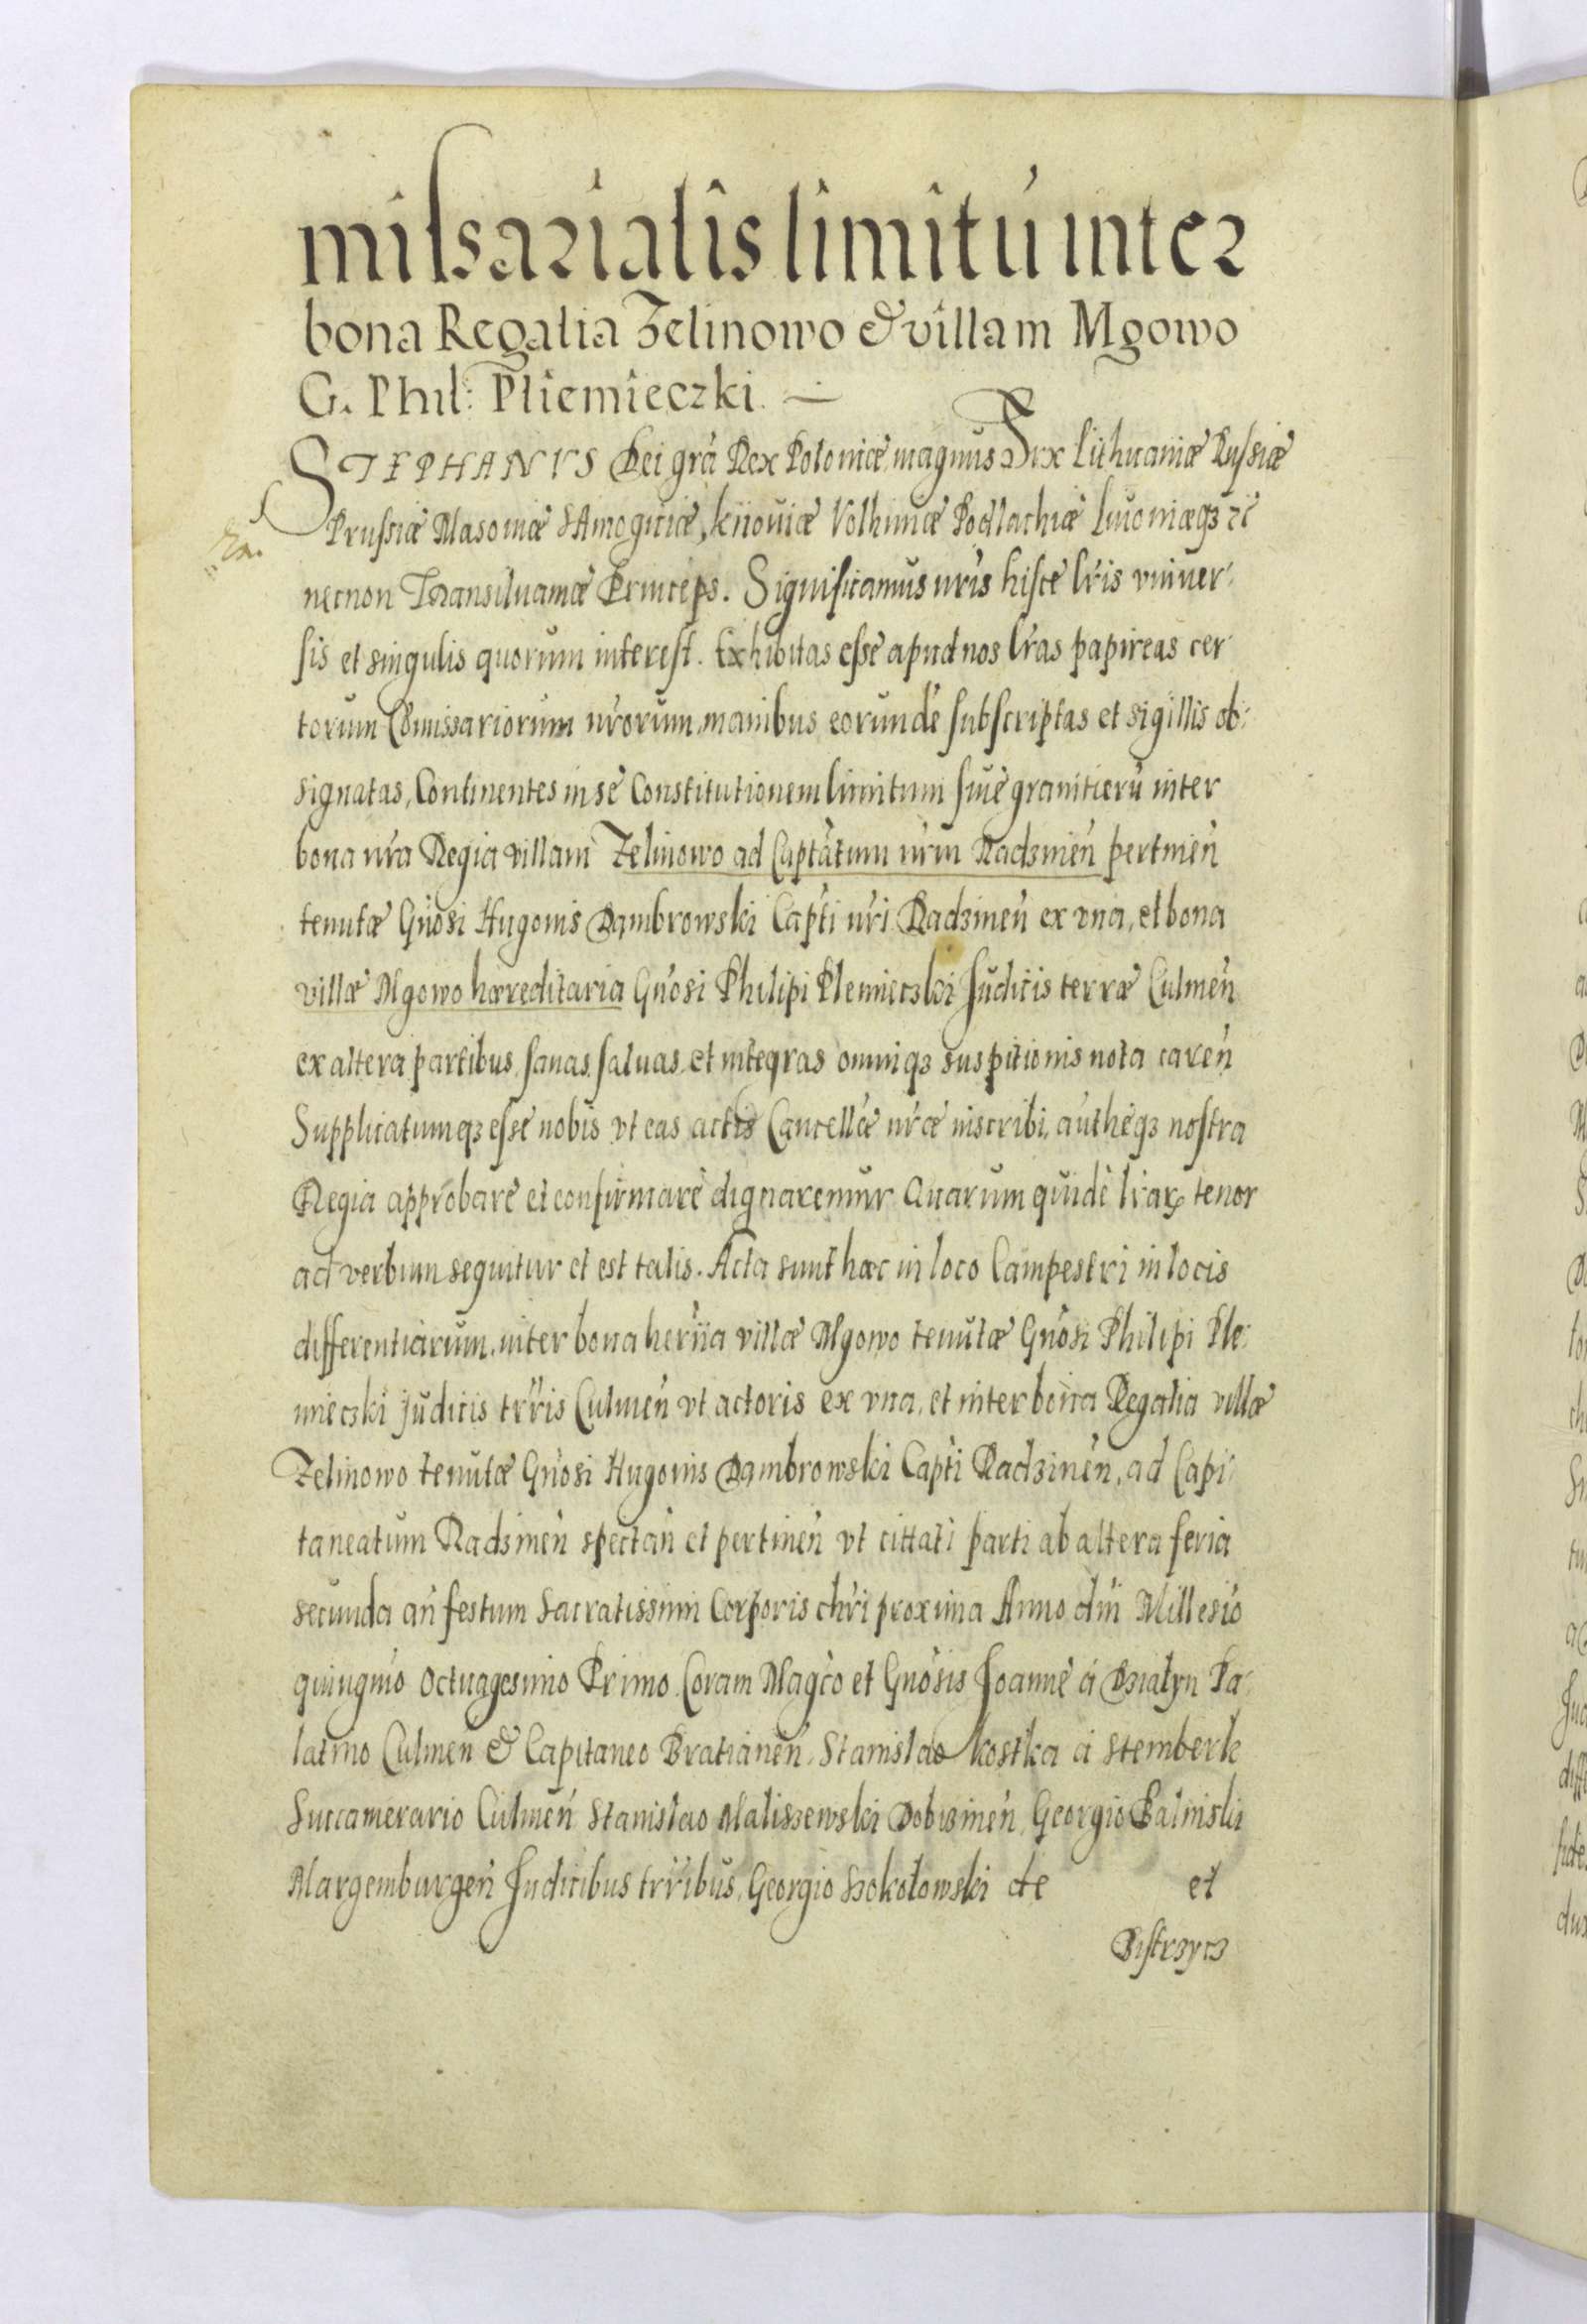 missarialis limitū inter
bona Regalia Zelinowo & villam Mgowo
G. Phil: Pliemieczki. —
STEPHANVS Dei grã Rex Poloniæ, magnus Dux Lithuaniæ Russiæ
Prussiæ Masoviæ SAmogitiæ, kiioviæ Volhiniæ Podlachiæ Livoniæqз
necnon Transiluaniæ Princeps. Significamus nr̃is hisce lr̃is vniuer-
sis et singulis quorum interest. Exhibitas esse apud nos lr̃as papireas cer-
torum Com̃issariorum nr̃orum, manibus eorundẽ subscriptas et sigillis ob-
signatas, Continentes in se Constitutionem limitum siue granitierũ inter
bona nr̃a Regia villam Zelinowo ad Captãtum nr̃m Radzineñ pertineñ
tenutæ Gñosi Hugonis Dambrowski Capti nr̃i Radzineñ ex vna, et bona
villæ Mgowo hæreditaria Gñosi Philipi Plemieczki Judicis terræ Culmeñ
ex altera partibus, sanas, saluas, et integras omniqз suspitionis nota careñ
Supplicatumqз esse nobis vt eas actis Cancellæ nr̃æ inscribi, authẽqз nostra
Regia approbare et confirmare dignaremur Quarum quidẽ lr̃aꝝ tenor
ad verbum sequitur et est talis. Acta sunt hæc in loco Campestri in locis
differentiarum, inter bona heriia villæ Mgowo tenutæ Gñosi Philipi Ple-
mieczki Judicis trr̃is Culmeñ vt actoris ex vna, et inter bona Regalia villæ
Zelinowo tenutæ Gñosi Hugonis Dambrowski Capti Radzineñ, ad Capi-
taneatum Radzineñ spectañ et pertineñ vt cittati parti ab altera feria
secunda añ festum Sacratissimi Corporis chr̃i proxima Anno dñi Millesiõ
quingmõ Octuagesimo Primo. Coram Magco et Gñosis Joanne à Dzialyn Pa-
latino Culmeñ & Capitaneo Bratianeñ, Stanislao kostka à Stemberk
Succamerario Culmeñ Stanislao Maliszewski Dobrzineñ, Georgio Balinski
Margemburgeñ Judicibus trr̃ibus, Georgio Szokolowski de et
Bistrzycz